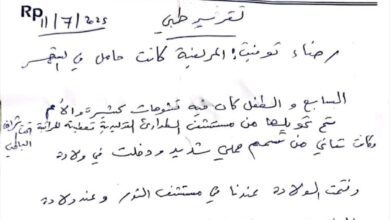 Rp
11/7/2025
تقرير طبي
رضاء توفيت: المريضة كانت حامل في الشهر
السابع و الطفل كان فيه تشوهات كثيرة والأم
تم تحويلها من مستشفى الطوارئ
وكانت تعاني من تسمم حملي شديد ودخلت في ولادة
وتمت الولادة عندنا في مستشفى النور وعند ولادة